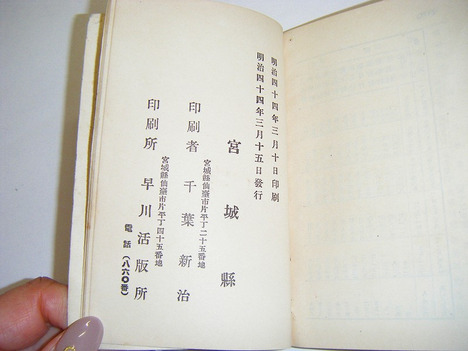 明治四十四年三月十日印刷
明治四十四年三月十五日發行
宮城縣
宮城縣仙臺市片平丁二十五番地
印刷者 千葉新治
宮城縣仙臺市片平丁四十五番地
印刷所 早川活版所
電話（八六〇番）